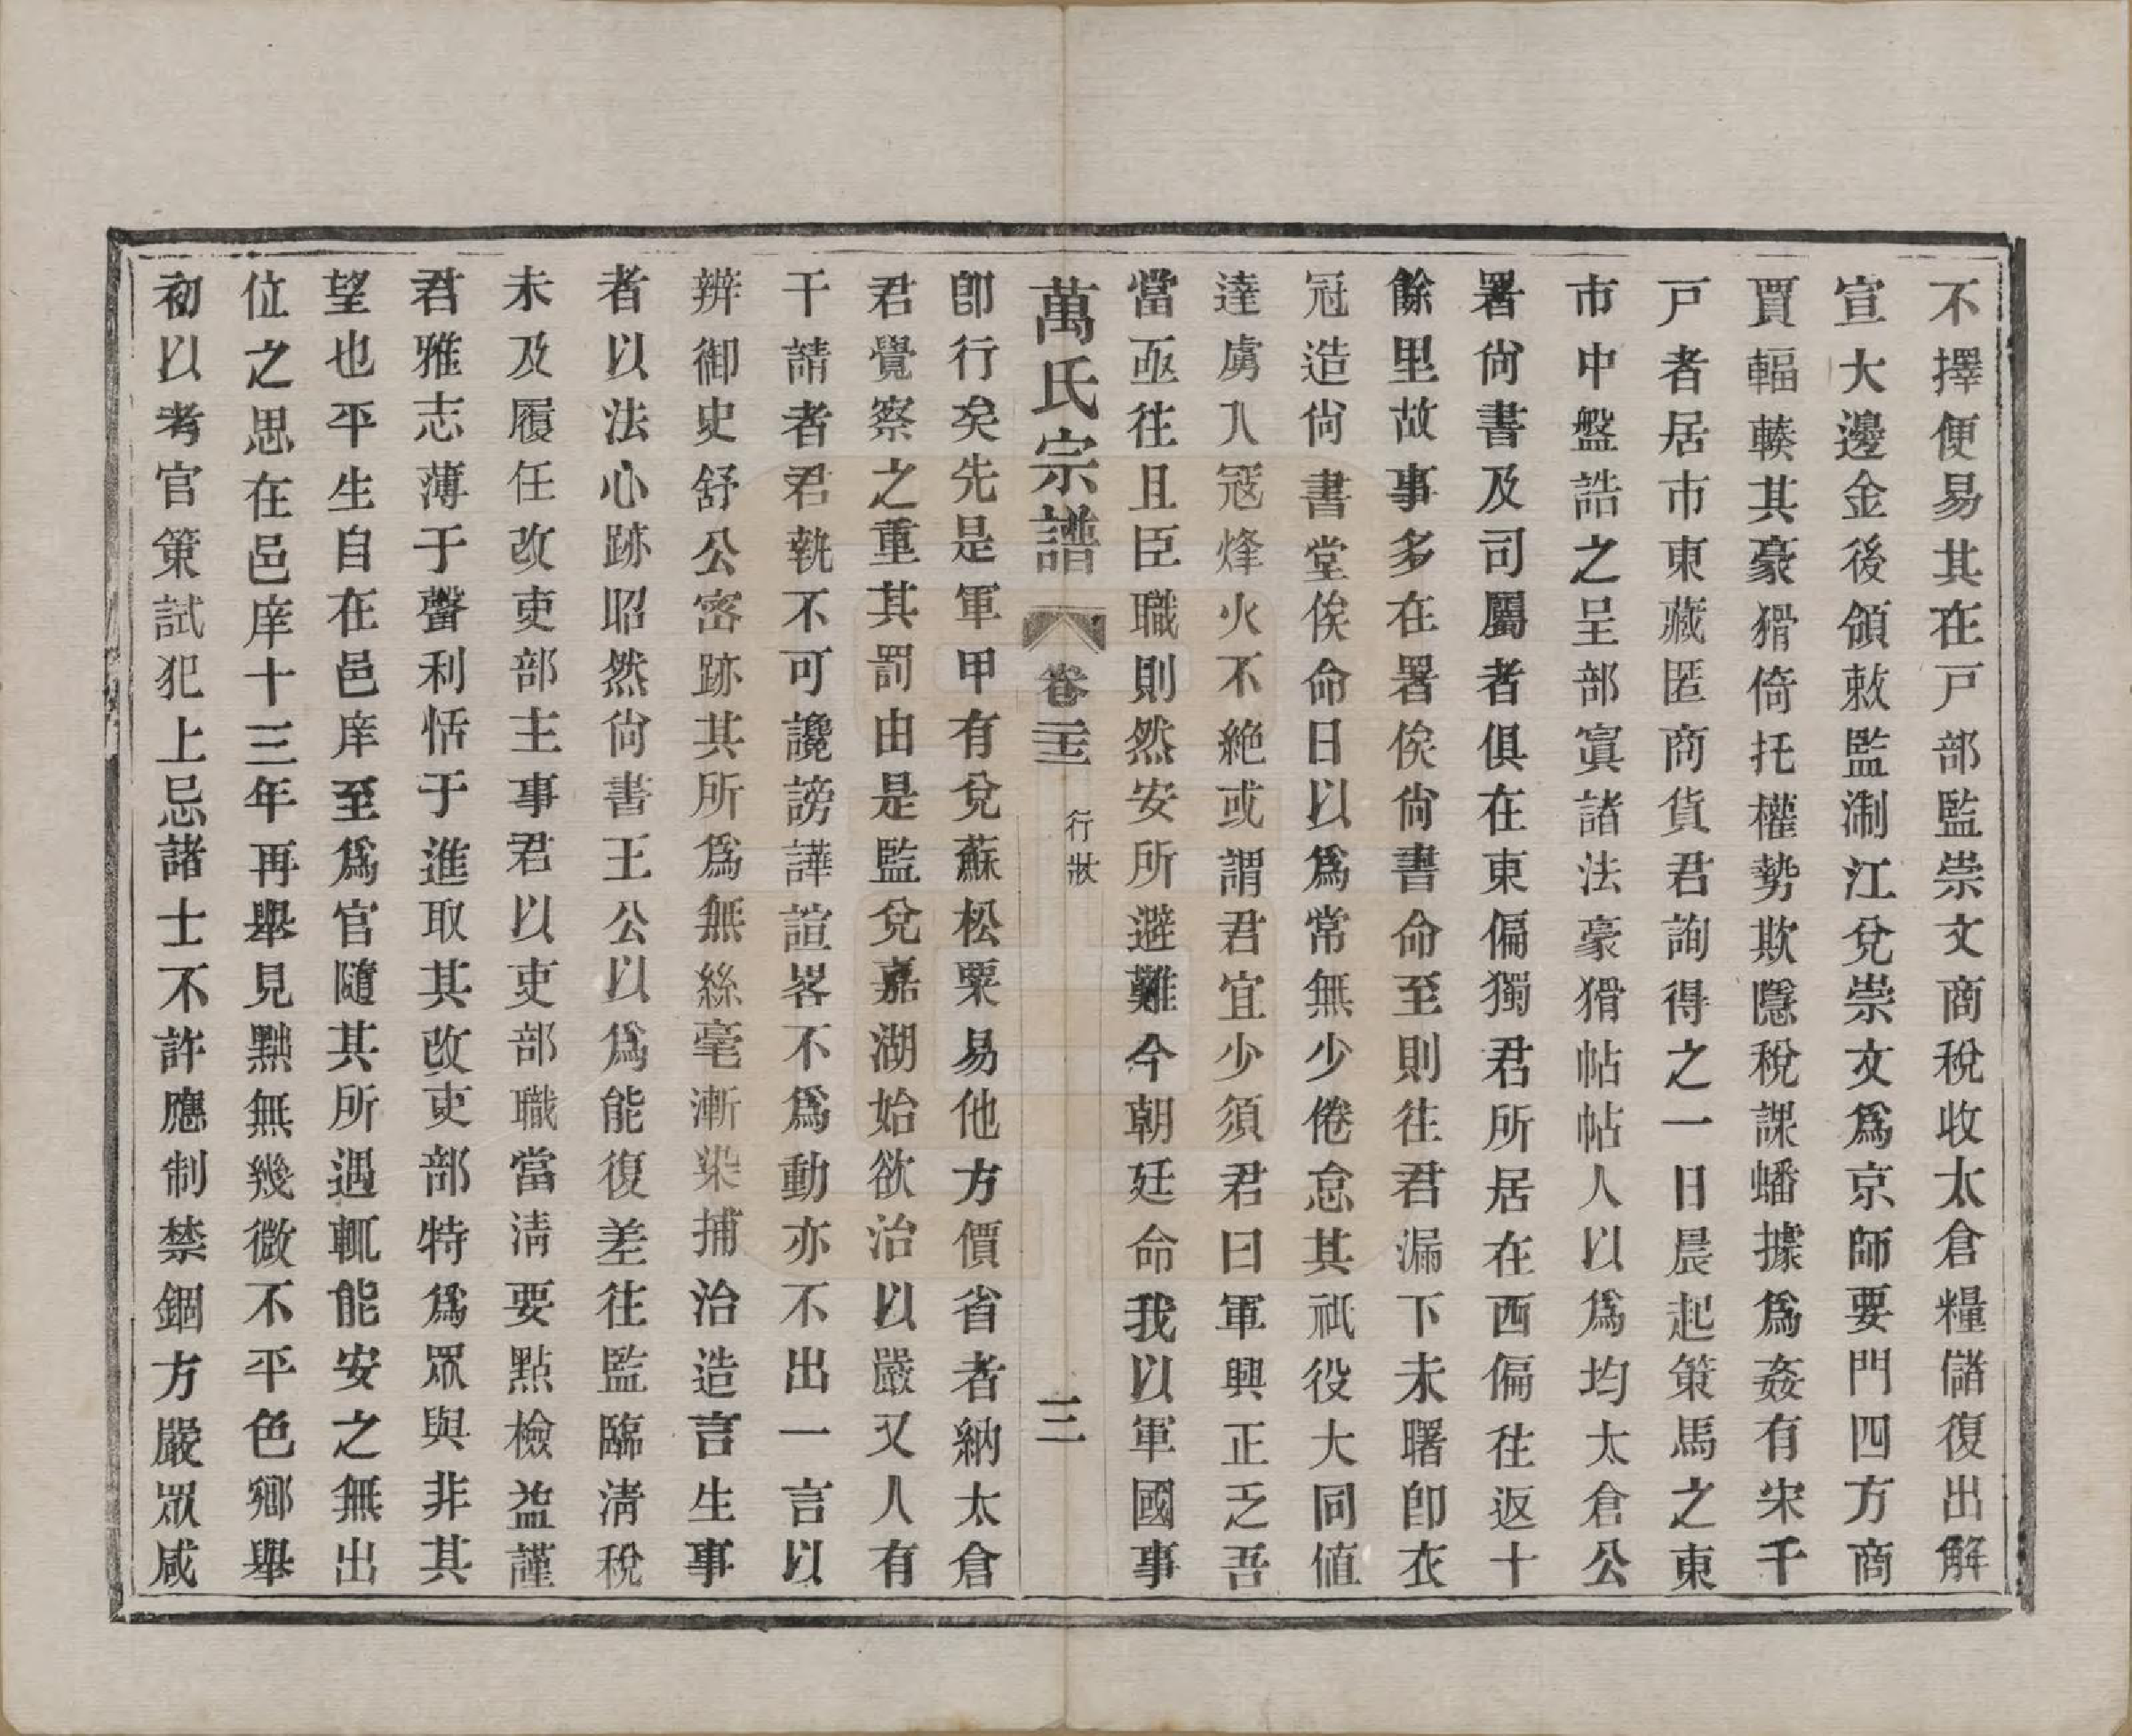 不擇便易其在戸部監崇文商稅收太倉糧儲復出解
宣大邊金後領敕監淛江兌崇文爲京師要門四方商
賈輻輳其豪猾倚托權勢欺隱稅課蟠據爲姦有宋千
戸者居市東藏匿商貨君詢得之一日晨起策馬之東
市中盤詰之呈部寘諸法豪猾帖帖人以爲均太倉公
署尙書及司屬者俱在東偏獨君所居在西偏往返十
餘里故事多在署俟尙書命至則往君漏下未曙卽衣
冠造尙書堂俟命日以爲常無少倦怠其祇役大同値
達虜入寇烽火不絶或謂君宜少須君曰軍興正乏吾
當亟往且臣職則然安所避難今朝廷命我以軍國事
萬氏宗譜 卷二十三 行狀 三
卽行矣先是軍甲有兌蘇松粟易他方價省者納太倉
君覺察之重其罰由是監兌嘉湖始欲治以嚴又人有
干請者君執不可讒謗譁諠畧不爲動亦不出一言以
辨御史舒公密跡其所爲無絲毫漸染捕治造言生事
者以法心跡昭然尙書王公以爲能復差往監臨淸稅
未及履任改吏部主事君以吏部職當淸要點檢益謹
君雅志薄于聲利恬于進取其改吏部特爲眾與非其
望也平生自在邑庠至爲官隨其所遇輒能安之無出
位之思在邑庠十三年再舉見黜無幾微不平色鄕舉
初以考官策試犯上忌諸士不許應制禁錮方嚴眾咸